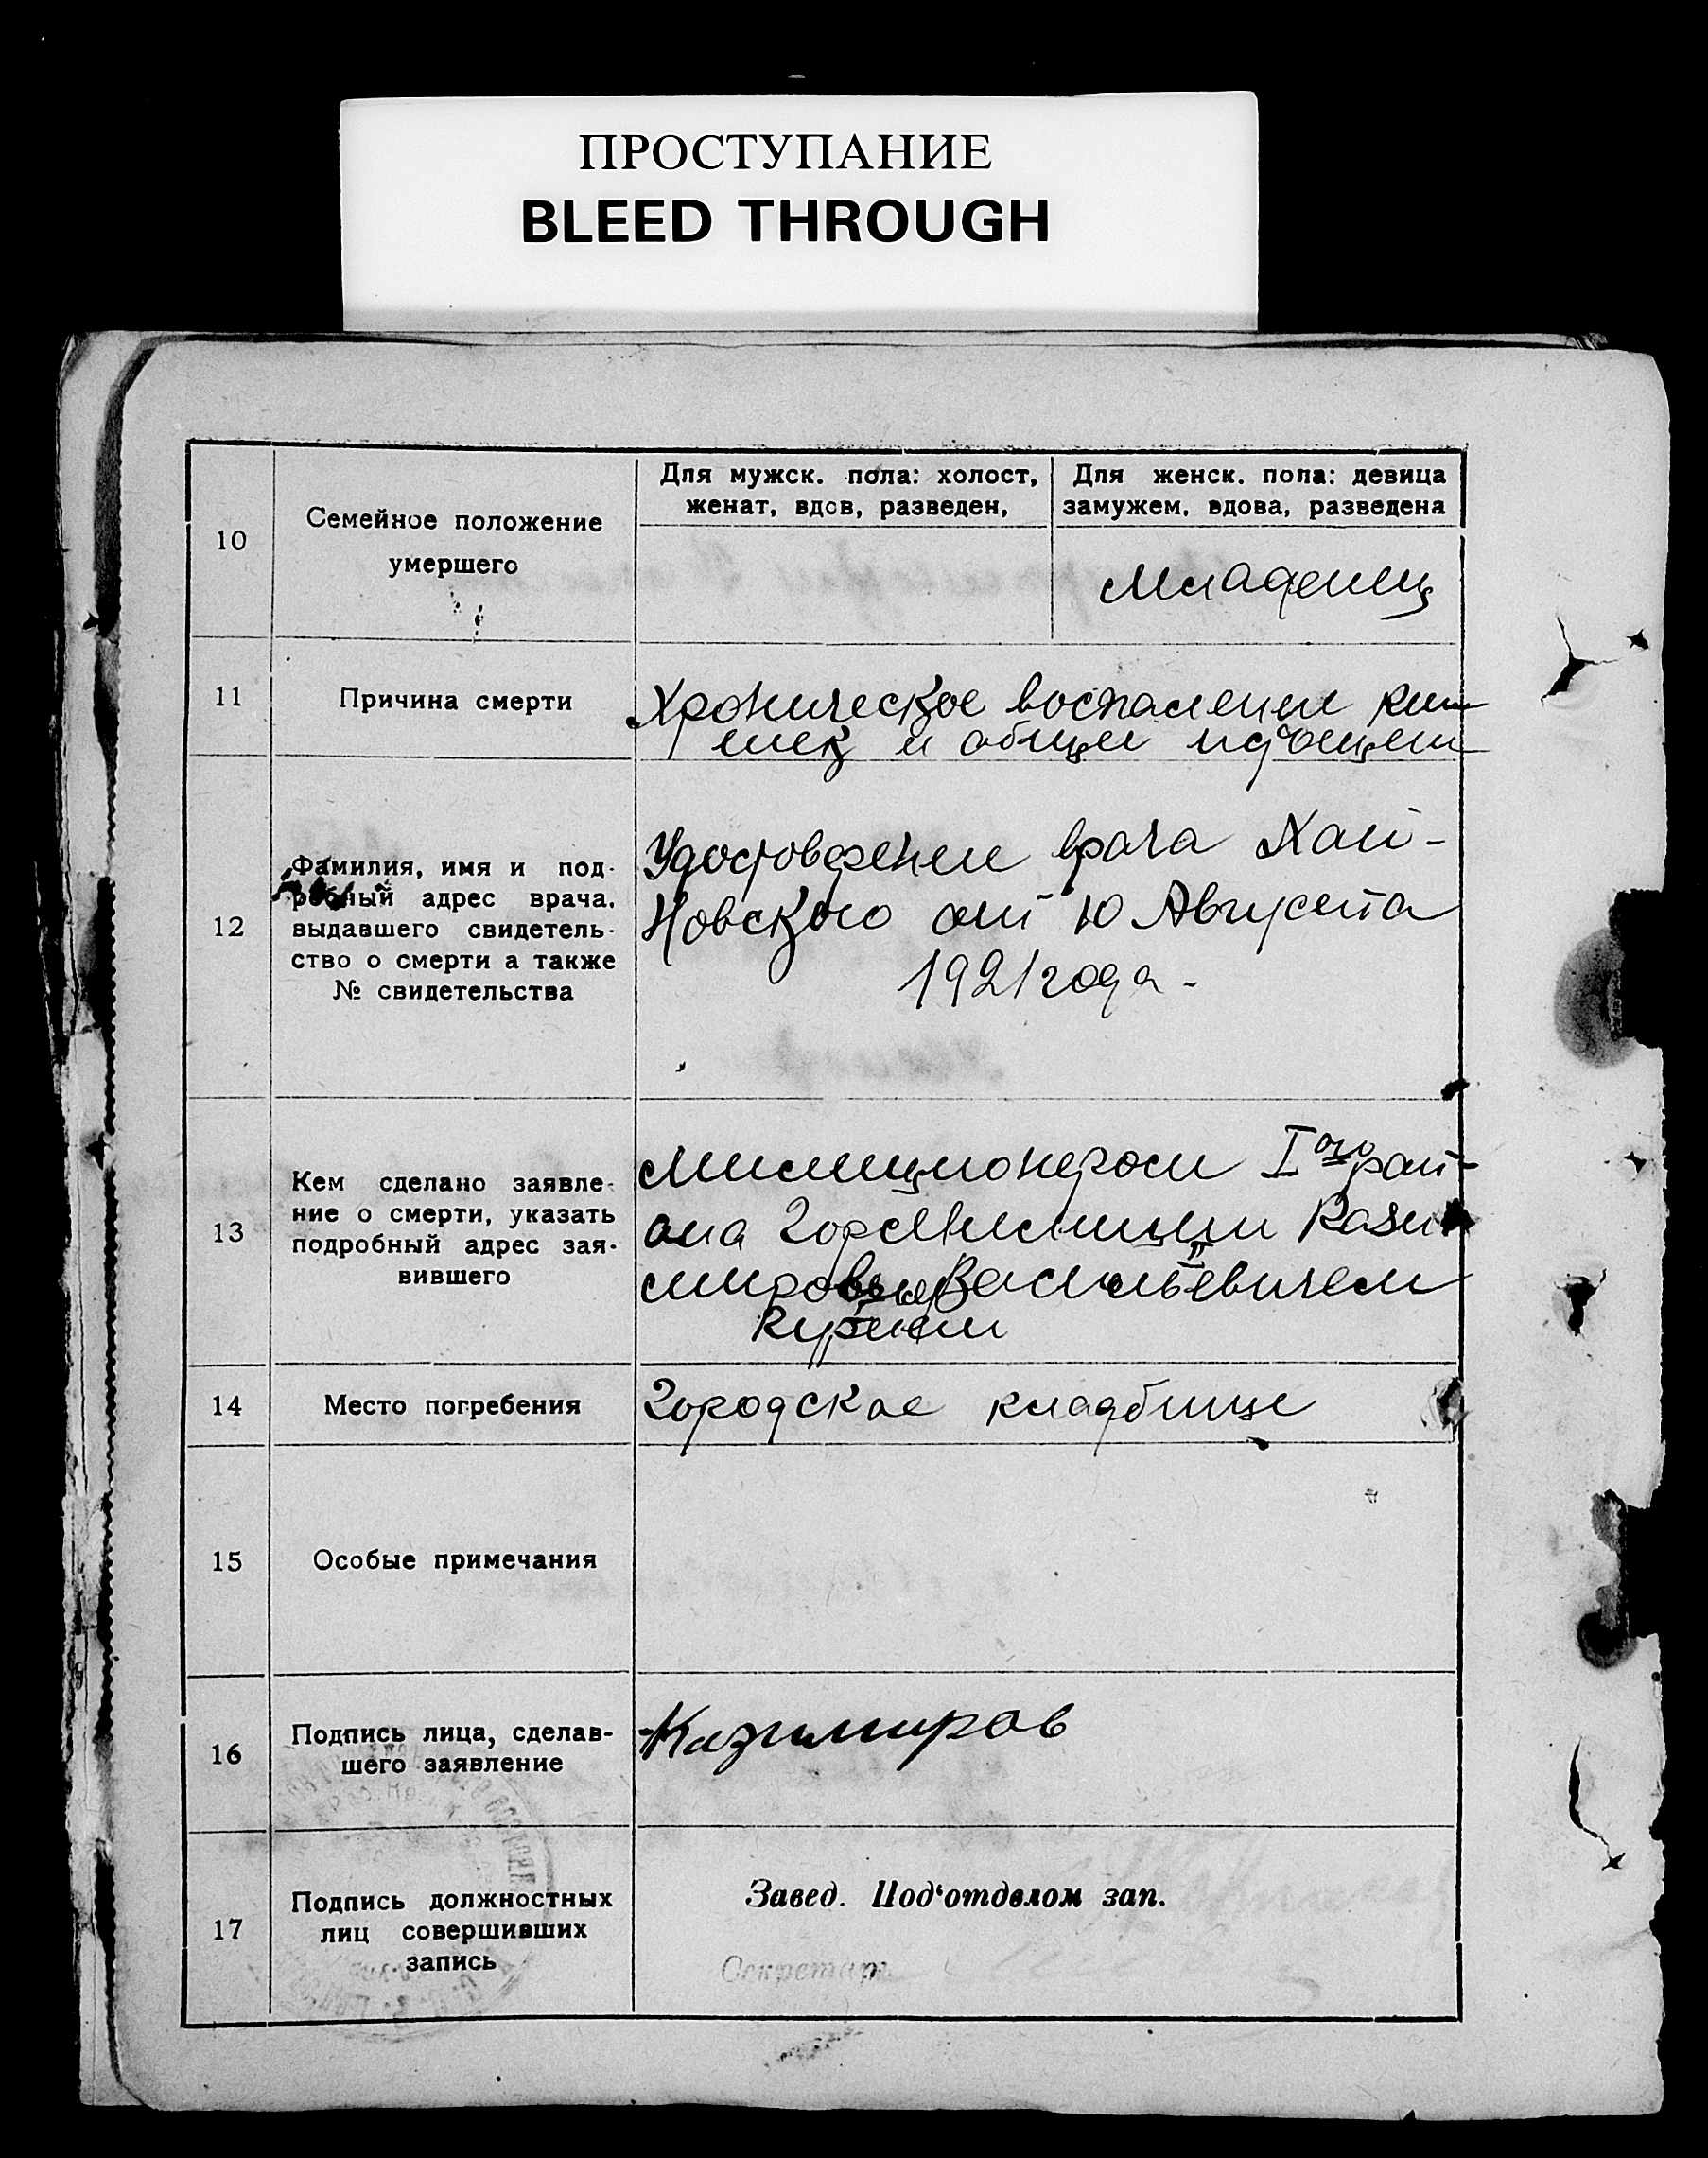 ПРОСТУПАНИЕ
BLEED THROUGH
Для мужск. пола: холост,
женат, вдов, разведен,
Для женск. пола: девица
замужем, вдова, разведена
10
Семейное положение
умершего
Младенец
11
Причина смерти
Хроническое воспаление киш
шек и общее
12
Фамилия, имя и под-
робный адрес врача,
выдавшего свидетель-
ство о смерти а также
№ свидетельства
Удостоверение врача Хай-
новского от 10 Августа
1921 года -
13
Кем сделано заявле-
ние о смерти, указать
подробный адрес зая-
вившего
Милиционером I ого рай-
она Гормилиции Кази
мировым Васильевичем
14
Место погребения
Городское кладбище
15
Особые примечания
16
Подпись лица, сделав-
шего заявление
Казимиров
17
Подпись должностных
лиц совершивших
запись
Завед. Под‘отделом зап.
Секретарь